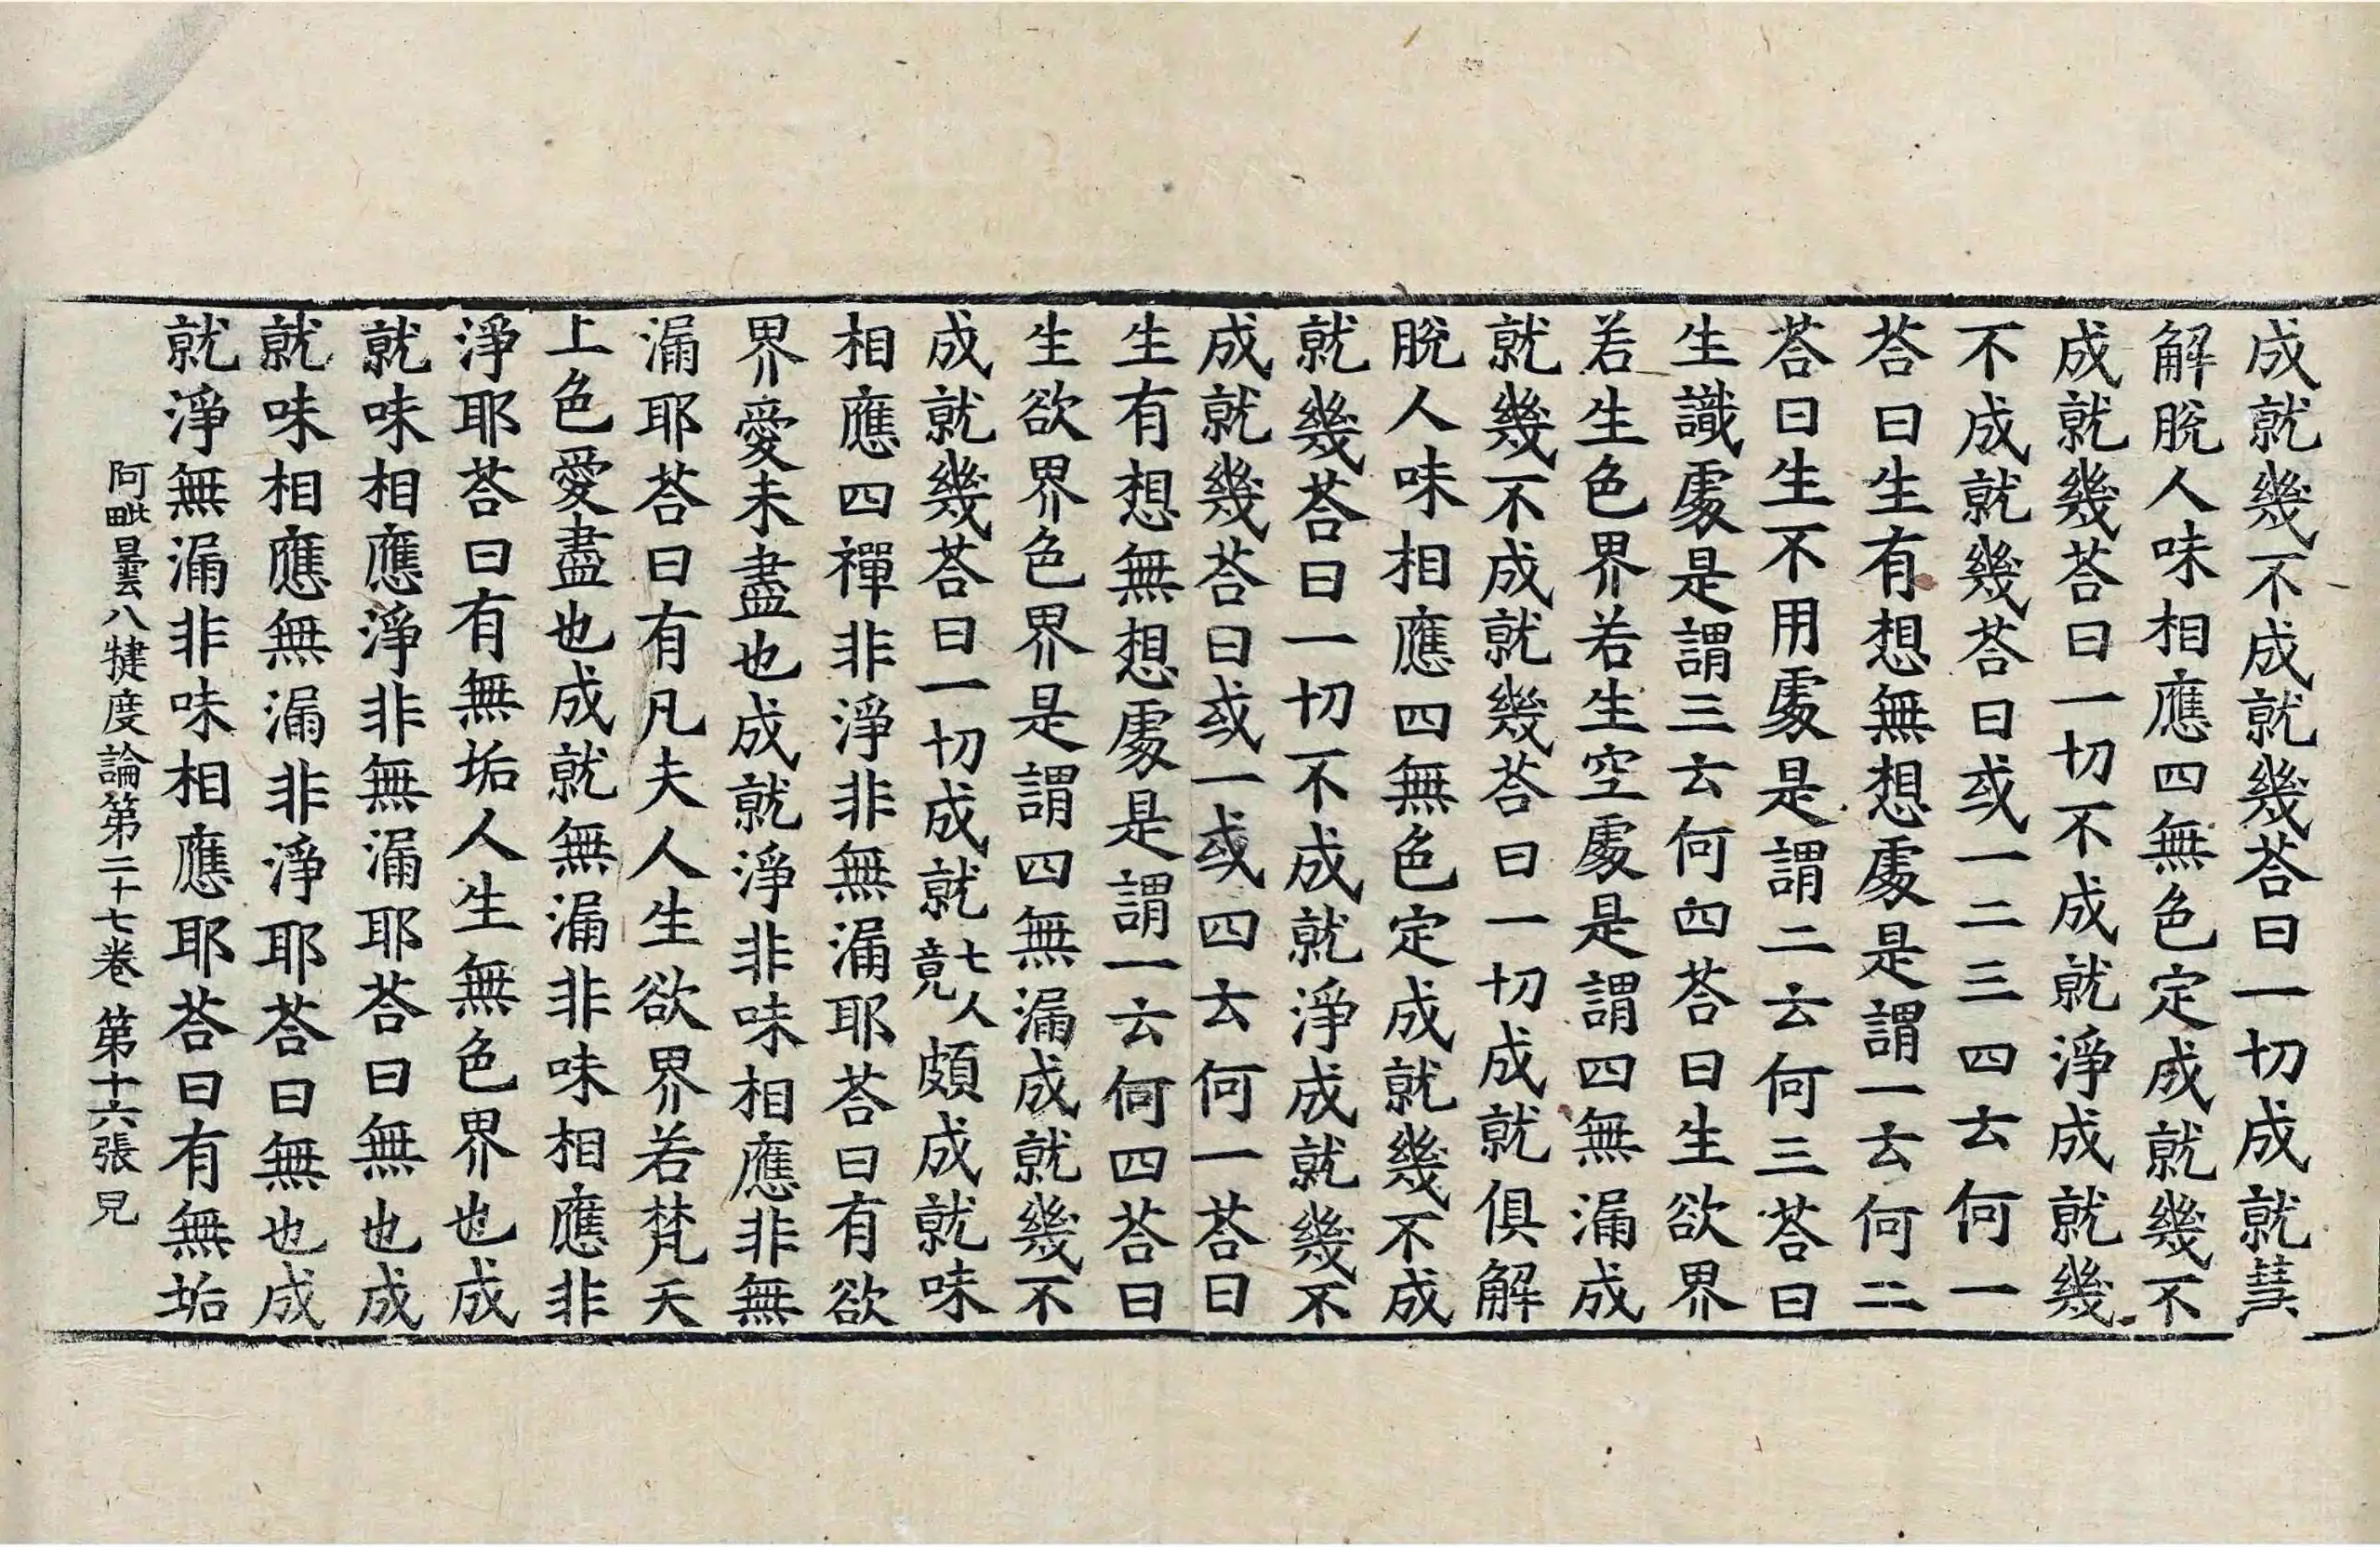 成就幾不成就幾荅曰一切成就慧
解脫人味相應四無色定成就幾不
成就幾荅曰一切不成就淨成就幾
不成就幾荅曰或一二三四云何一
荅曰生有想無想處是謂一云何二
荅曰生不用處是謂二云何三荅曰
生識處是謂三云何四荅曰生欲界
若生色界若生空處是謂四無漏成
就幾不成就幾荅曰一切成就俱解
脫人味相應四無色定成就幾不成
就幾荅曰一切不成就淨成就幾不
成就幾荅曰或一或四云何一荅曰
生有想無想處是謂一云何四荅曰
生欲界色界是謂四無漏成就幾不
成就幾荅曰一切成就七人竟頗成就味
相應四禪非淨非無漏耶荅曰有欲
界愛未盡也成就淨非味相應非無
漏耶荅曰有凡夫人生欲界若梵天
上色愛盡也成就無漏非味相應非
淨耶荅曰有無垢人生無色界也成
就味相應淨非無漏耶荅曰無也成
就味相應無漏非淨耶荅曰無也成
就淨無漏非味相應耶荅曰有無垢
阿毗曇八犍度論第二十七卷 第十六張 見